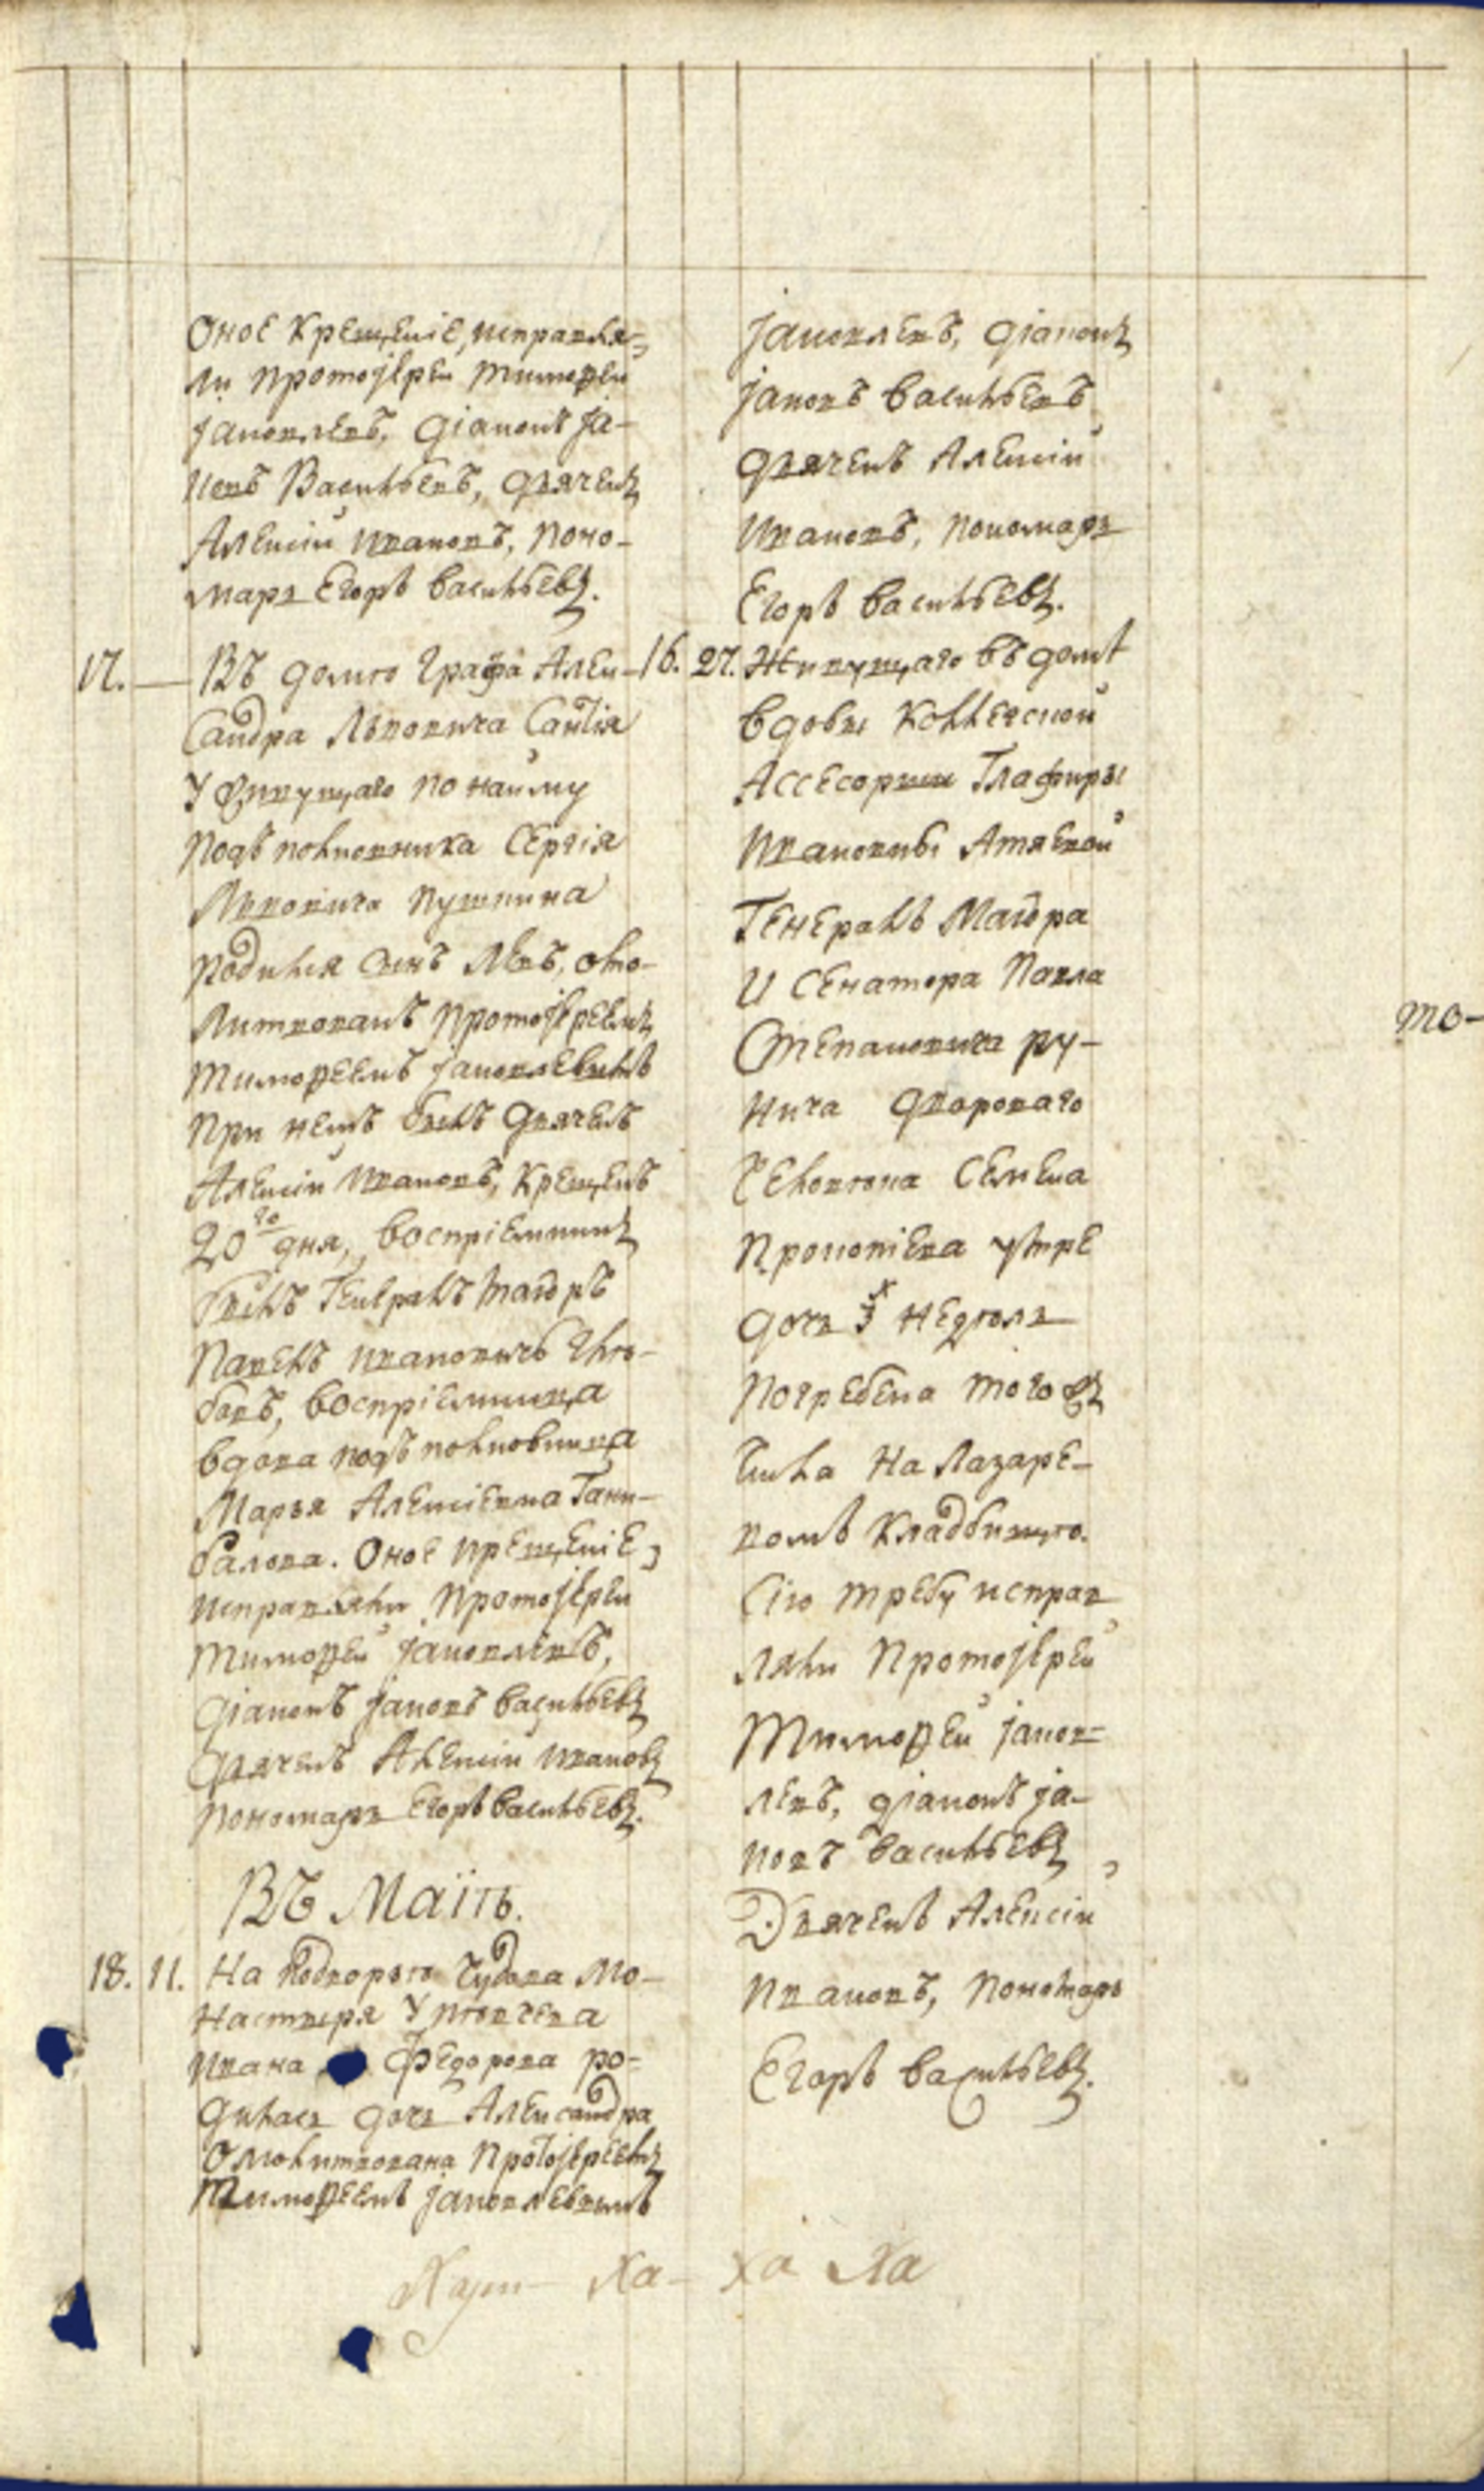 Оное Крещенiе, исправля-
ли протоjерей Тимоѳей
jаковлевъ, дiаконъ jа-
ковъ Васильевъ, дьячекъ
Алексiй ивановъ, поно-
марь Егоръ васильевъ.
17. — Въ доме Графа Алек-
Сандра Львовича Сантiя
У живущаго по найму
подъ полковника Сергiя
Львовича пушкина
родился сынъ Левъ, омо-
Литвованъ протоjереемъ
тимоѳеемъ jаковлевымъ
при немъ былъ дьячекъ
Алексiй ивановъ, Крещенъ
20го дня, воспрiемникъ
былъ Генералъ маiоръ
Павелъ ивановичь Глѣ-
бовъ, воспрiемница
вдова подъ полковница
Марья Алексiевна Гани-
балова. Оное крещенiе,
исправляли протоjерей
тимоѳей jаковлевъ,
дiаконъ jаковъ васильевъ
дьячекъ Алексiй ивановъ
пономарь Егоръ васильевъ.
Въ Маiѣ.
18. 11. На подворье Чудова мо-
настыря У певчева
ивана Федорова ро-
дилась дочь Александра
Омолитвована протоjереемъ
тимоѳеемъ jаковлевымъ
jаковлевъ, дiаконъ
jаковъ васильевъ
дьячекъ Алексiй
ивановъ, пономарь
Егоръ васильевъ.
16. 27. Живущаго въ доме
вдовы Коллегской
Ассесорши Глафиры
ивановны Атяевой
Генералъ Маiора
и Сенатора Павла
Степановича ру-
нича двороваго
Человека Семена
прокопiева умре
дочь 3х неделъ
погребена того жъ
числа на Лазаре-
вомъ кладбище.
Сiю требу исправ
ляли протоjерей
Тимоѳей jаков-
левъ, дiаконъ jа-
ковъ васильевъ,
Дьячекъ Алексiй
ивановъ, пономарь
Егоръ васильевъ.
то-
Ха- ха Ха